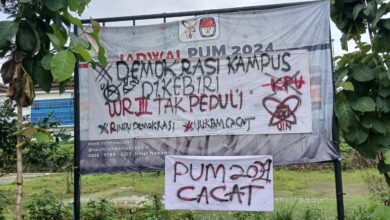 JADWAL PUM 2024
* DEMOKRASI KAMPUS
DIKEBIRI
WR III TAK PEDULI
KPU
UIN
*RINDU DEMOKRASI *UUKBM CACAT
More Information
PUM 2024
CACAT